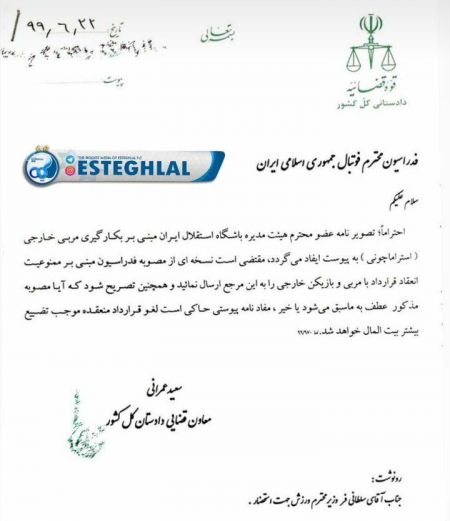 بسمه تعالی
تاریخ: ۹۹٫۶٫۲۲
پیوست:
قوه قضائیه
دادستانی کل کشور
THE BIGGEST MEDIA OF ESTEGHLAL F.C
ESTEGHLAL
فدراسیون محترم فوتبال جمهوری اسلامی ایران
سلام علیکم
احتراماً؛ تصویر نامه عضو محترم هیئت مدیره باشگاه استقلال ایران مبنی بر بکارگیری مربی خارجی
(استراماچونی) به پیوست ایفاد می گردد، مقتضی است نسخه ای از مصوبه فدراسیون مبنی بر ممنوعیت
انعقاد قرارداد با مربی و بازیکن خارجی را به این مرجع ارسال نمائید و همچنین تصریح شود که آیا مصوبه
مذکور عطف به ماسبق می‌شود یا خیر ، مفاد نامه پیوستی حاکی است لغو قرارداد منعقده موجب تضییع
بیشتر بیت المال خواهد شد.
سعید عمرانی
معاون قضایی دادستان کل کشور
رونوشت:
جناب آقای سلطانی فر وزیر محترم ورزش جهت استحضار .